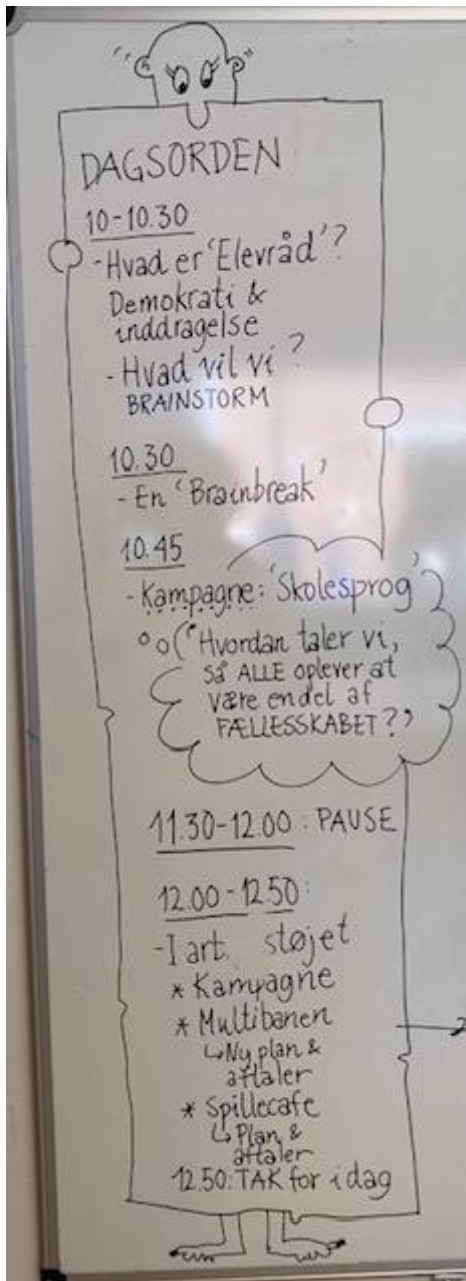 DAGSORDEN
10-10.30
- Hvad er 'Elevråd'?
Demokrati &
inddragelse
- Hvad vil vi?
BRAINSTORM
10.30
- En 'Brainbreak'
10.45
- Kampagne: 'Skolesprog'
"Hvordan taler vi,
så ALLE oplever at
være en del af
FÆLLESSKABET?"
11.30-12.00: PAUSE
12.00-12.50:
- I art. støjet
* Kampagne
* Multibanen
↳ Ny plan &
aftaler
* Spillecafe
↳ Plan &
aftaler
12.50: TAK for i dag